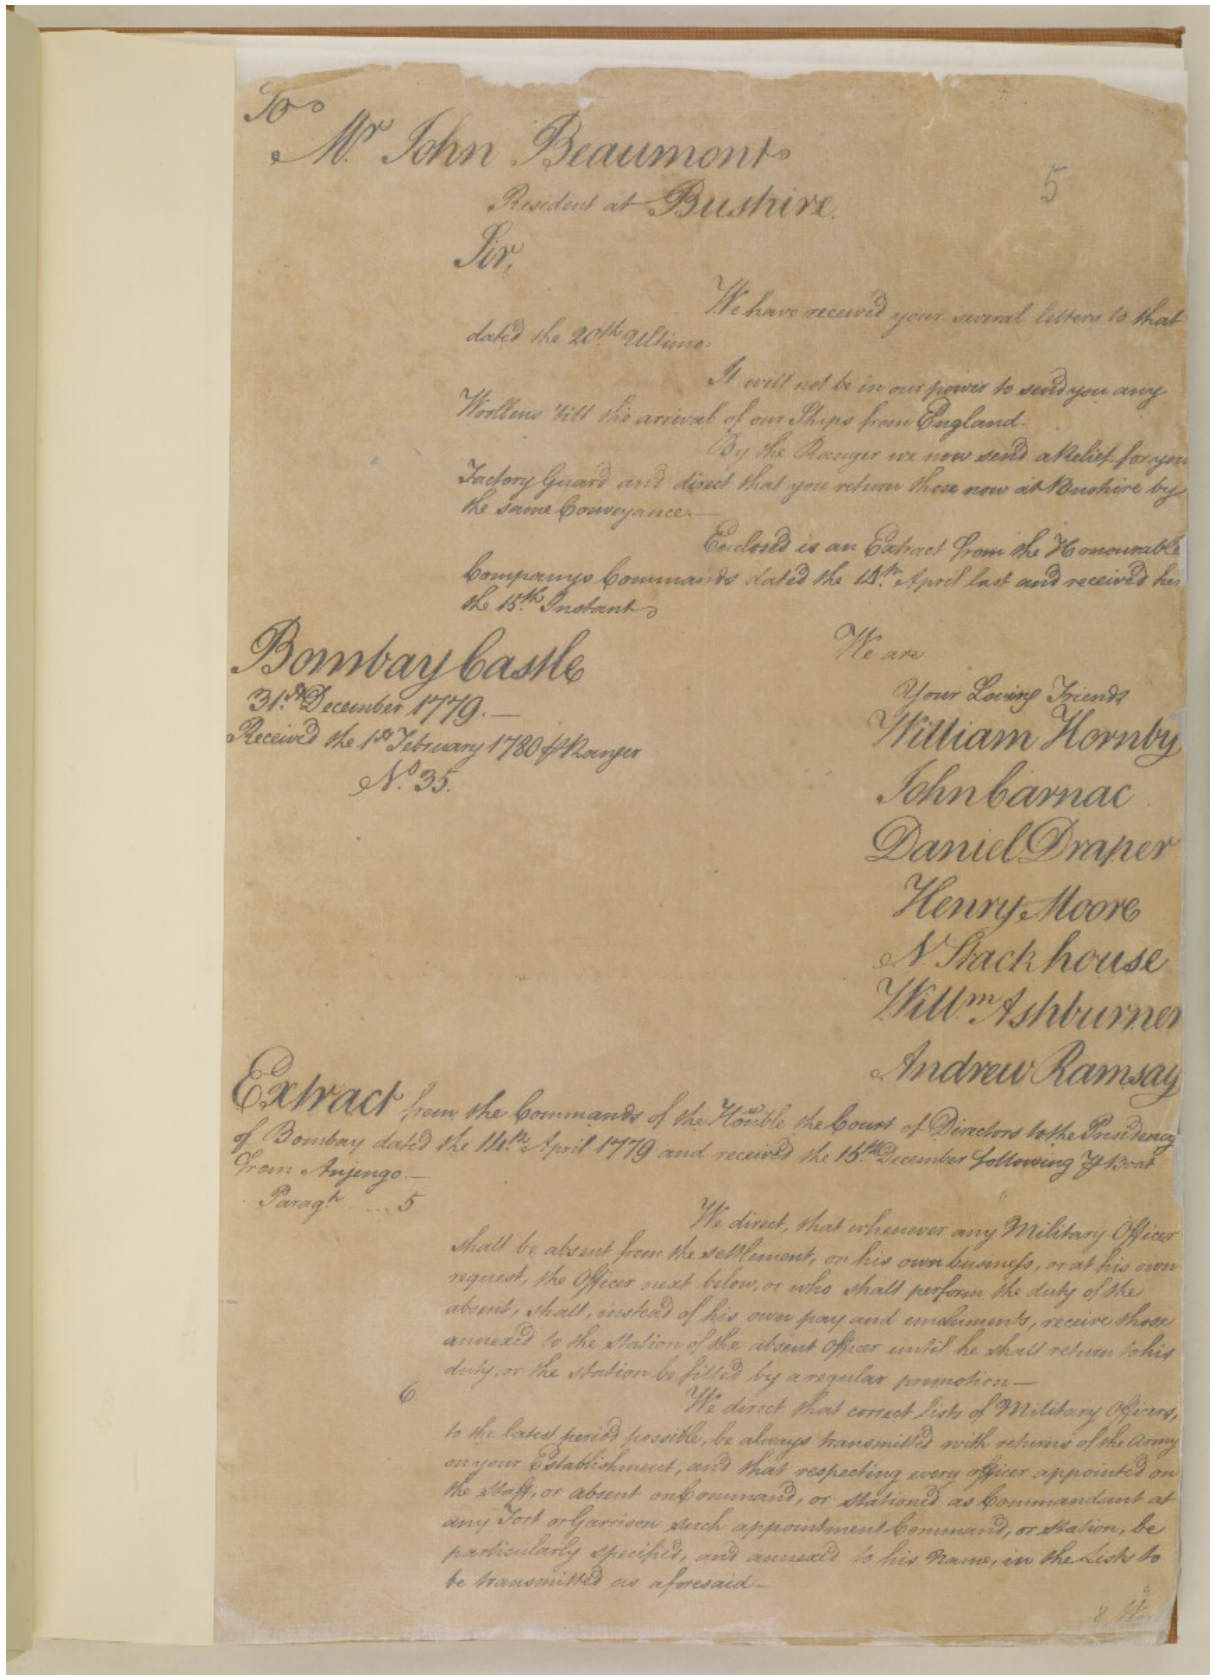 To
Mr. John Beaumont
5
Resident at Bushire.
Sir,
We have received your several letters to that
dated the 20th. Ultimo.
It will not be in our power to send you any
Woollens 'till the arrival of our Ships from England.
By the Ranger we now send a Relief for you
Factory Guard and direct that you return those now at Bushire by
the same Conveyance.—
Enclosed is an Extract from the Honourable
Companys Commands dated the 14th. April last and received her
the 15th. Instant
Bombay Castle
31st. December 1779.—
Received the 1st February 1780 ⅌ Ranger
No. 35.
We are
Your Loving Friends
William Hornby
John Carnac
Daniel Draper
Henry Moore
N. Stackhouse
Willm. Ashburner
Andrew Ramsay
Extract from the Commands of the Honble the Court of Directors to the Presidency
of Bombay dated the 14th. April 1779 and received the 15th. December following ⅌ Boat
from Anjengo.—
Paragh. .... 5
We direct, that whenever any Military Officer
shall be absent from the settlement, on his own business, or at his own
request, the Officer next below, or who shall perform the duty of the
absent, shall, instead of his own pay and emoluments, receive those
annexed to the station of the absent Officer until he shall return to his
duty, or the station be filled by a regular promotion—
6.
We direct that correct Lists of Military Officers,
to the latest period possible, be always transmitted with returns of the Army
on your Establishment, and that respecting every officer appointed on
the Staff, or absent on Command, or stationed as Commandant at
any Fort or Garrison such appointment Command, or station, be
particularly specified, and annexed to his Name, in the Lists to
be transmitted as aforesaid—